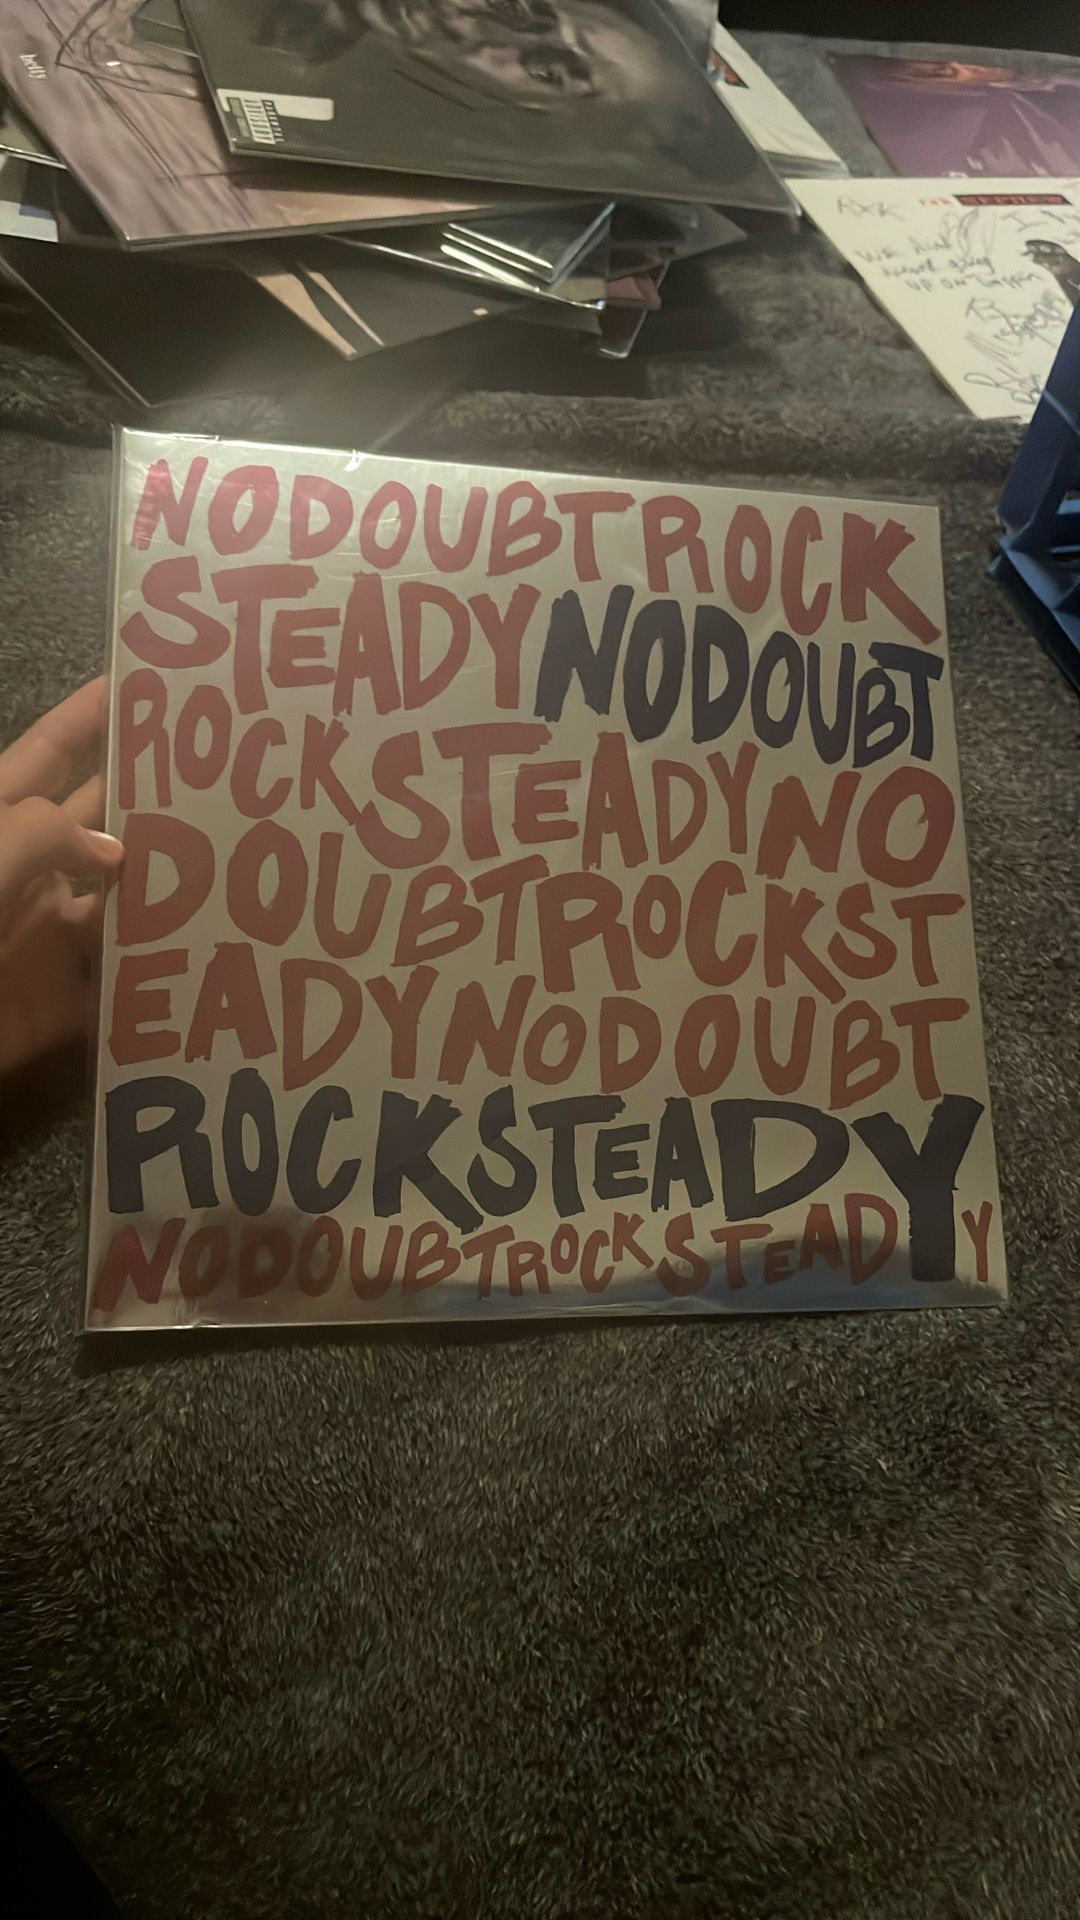 belly
NODOUBTROCK
STEADYNODOUBT
ROCKSTEADYNO
DOUBTROCKST
EADYNODOUBT
ROCKSTEADY
NODOUBTROCKSTEADY